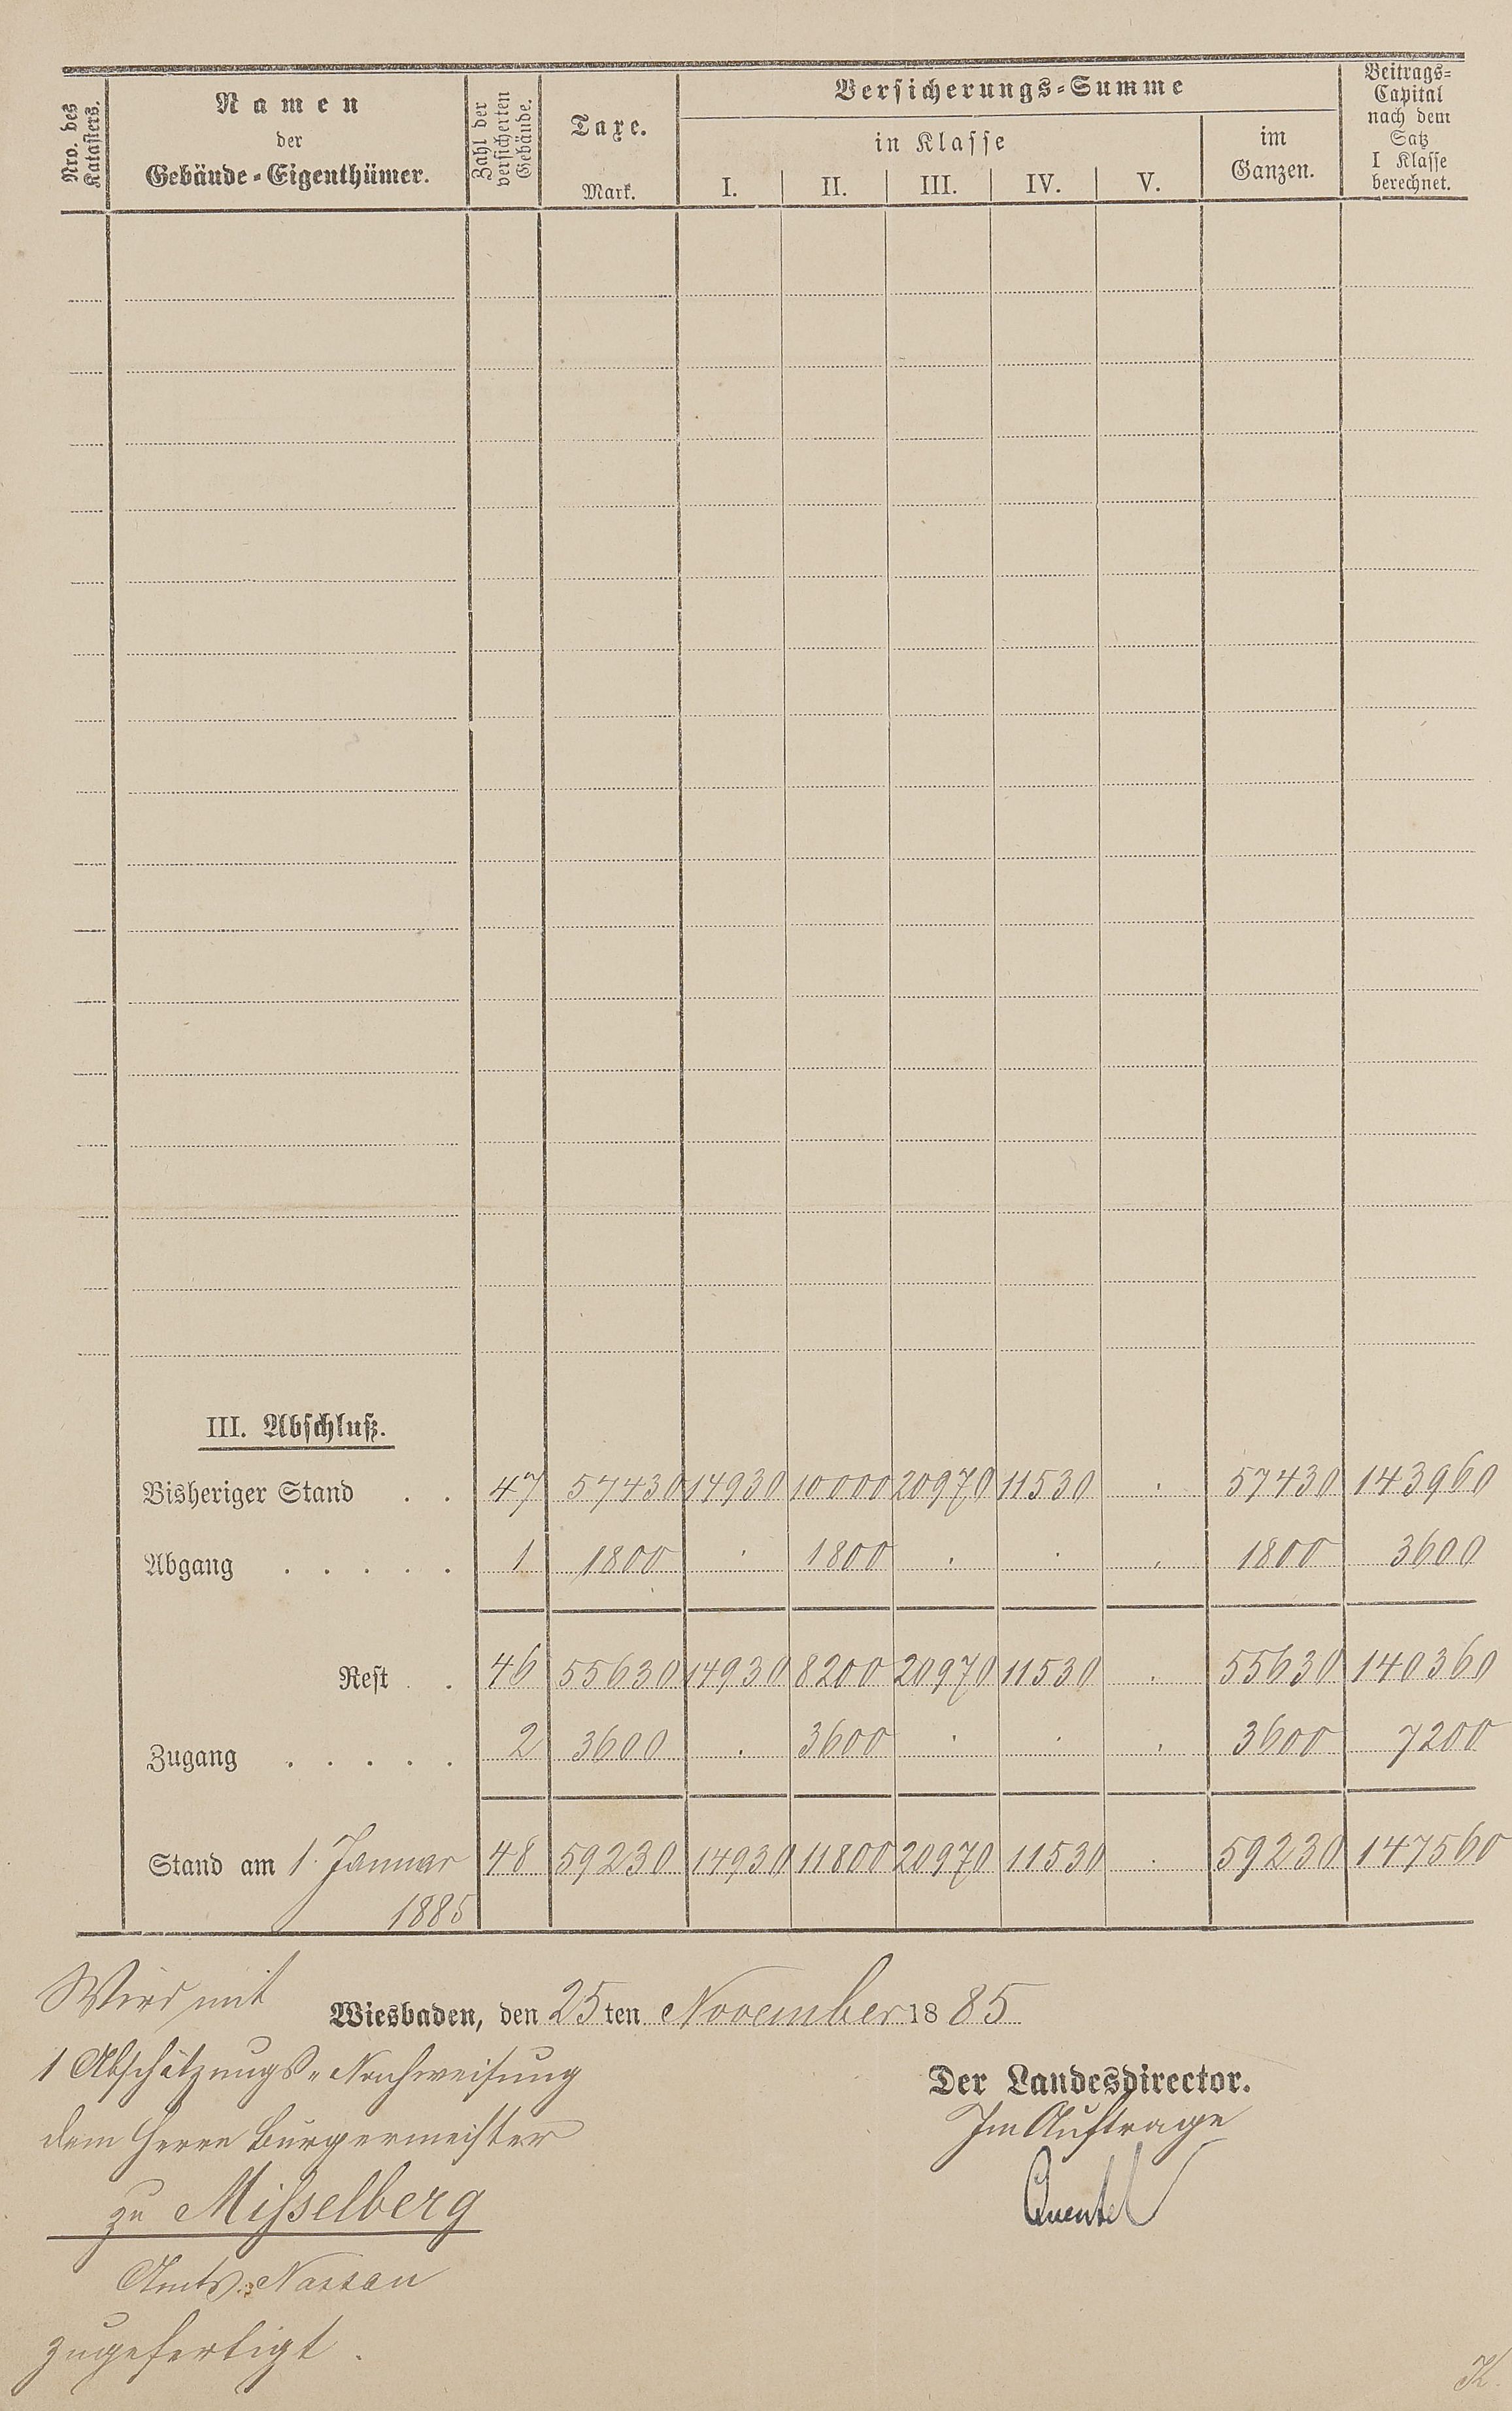 Nro. des Katasters.
Namen
der
Gebäude-Eigenthümer.
Zahl der versicherten Gebäude.
Taxe.
Mark.
Versicherungs-Summe
in Klasse
I. II. III. IV. V.
im
Ganzen.
Beitrags-
Capital
nach dem
Satz
I Klasse
berechnet.
III. Abschluß.
Bisheriger Stand . . 47 57430 14930 10000 20970 11530 . 57430 143960
Abgang . . . . . 1 1800 . 1800 . . . 1800 3600
Rest . . 46 55630 14930 8200 20970 11530 . 55630 140360
Zugang . . . . . 2 3600 . 3600 . . . 3600 7200
Stand am 1. Januar 48 59230 14930 11800 20970 11530 . 59230 147560
1885
Wird mit
Wiesbaden, den 25ten November 1885
1 Abschätzungs-Nachweisung
dem Herrn Bürgermeister
zu Misselberg
Amts: Nassau
zugefertigt.
Der Landesdirector.
Im Auftrage
Quentel